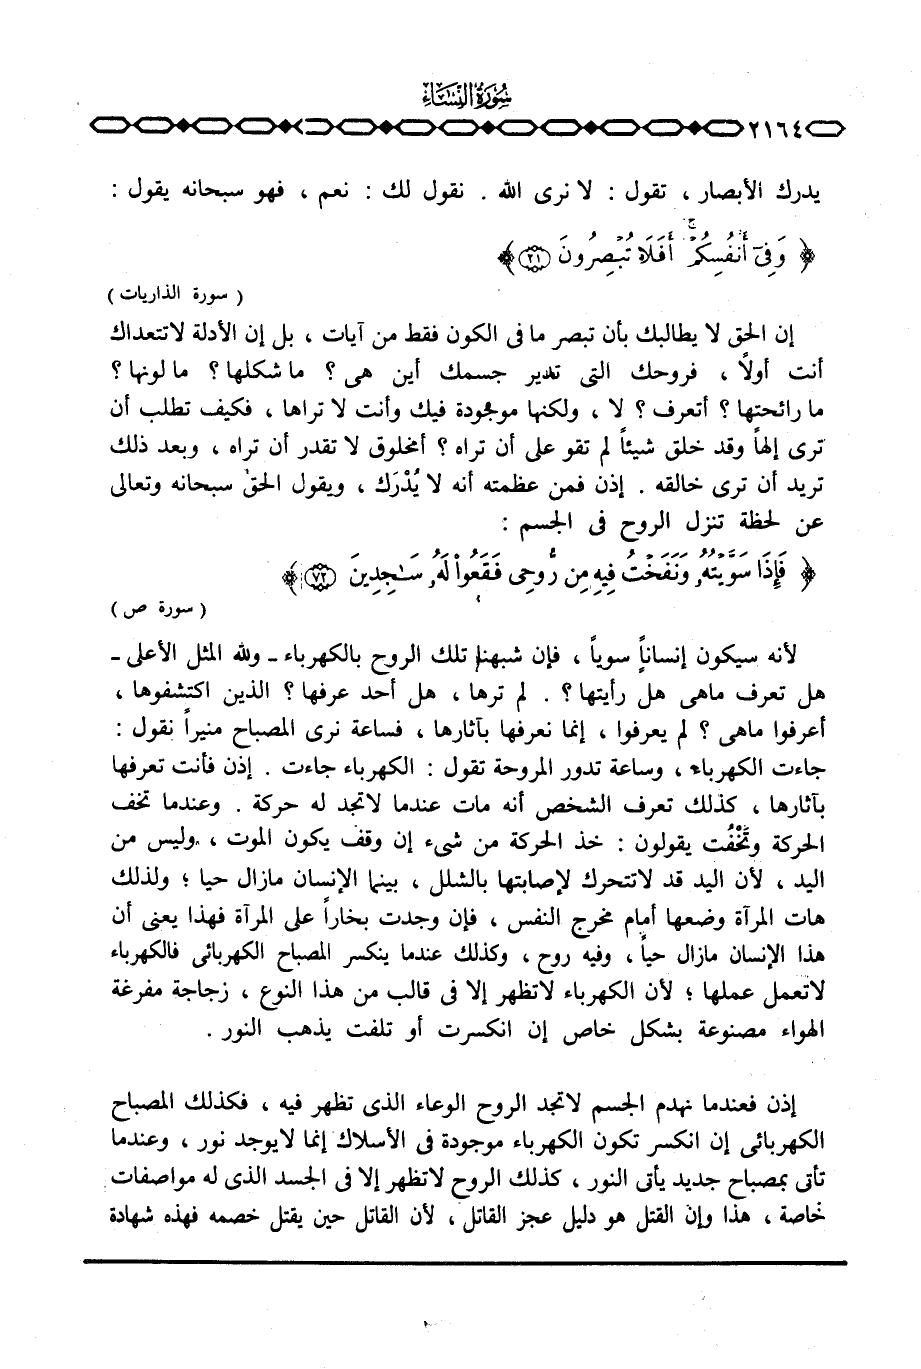 سُورَةُ النِّسَاء
٢١٦٤
يدرك الأبصار ، تقول : لا نرى الله . نقول لك : نعم ، فهو سبحانه يقول :
﴿ وَفِىٓ أَنفُسِكُمْ ۚ أَفَلَا تُبْصِرُونَ ٢١ ﴾
( سورة الذاريات )
إن الحق لا يطالبك بأن تبصر ما فى الكون فقط من آيات ، بل إن الأدلة لا تتعداك
أنت أولاً ، فروحك التى تدير جسمك أين هى ؟ ما شكلها ؟ ما لونها ؟
ما رائحتها ؟ أتعرف ؟ لا ، ولكنها موجودة فيك وأنت لا تراها ، فكيف تطلب أن
ترى إلهاً وقد خلق شيئاً لم تقو على أن تراه ؟ أمخلوق لا تقدر أن تراه ، وبعد ذلك
تريد أن ترى خالقه . إذن فمن عظمته أنه لا يُدْرَك ، ويقول الحق سبحانه وتعالى
عن لحظة تنزل الروح فى الجسم :
﴿ فَإِذَا سَوَّيْتُهُۥ وَنَفَخْتُ فِيهِ مِن رُّوحِى فَقَعُوا۟ لَهُۥ سَٰجِدِينَ ٧٢ ﴾
( سورة ص )
لأنه سيكون إنساناً سوياً ، فإن شبهنا تلك الروح بالكهرباء ـ ولله المثل الأعلى ـ
هل تعرف ماهى هل رأيتها ؟ . لم ترها ، هل أحد عرفها ؟ الذين اكتشفوها ،
أعرفوا ماهى ؟ لم يعرفوا ، إنما نعرفها بآثارها ، فساعة نرى المصباح منيراً نقول :
جاءت الكهرباء ، وساعة تدور المروحة تقول : الكهرباء جاءت . إذن فأنت تعرفها
بآثارها ، كذلك تعرف الشخص أنه مات عندما لاتجد له حركة . وعندما تخف
الحركة وتَخْفُت يقولون : خذ الحركة من شىء إن وقف يكون الموت ، وليس من
اليد ، لأن اليد قد لاتتحرك لإصابتها بالشلل ، بينما الإنسان مازال حيا ؛ ولذلك
هات المرآة وضعها أمام مخرج النفس ، فإن وجدت بخاراً على المرآة فهذا يعنى أن
هذا الإنسان مازال حياً ، وفيه روح ، وكذلك عندما ينكسر المصباح الكهربائى فالكهرباء
لاتعمل عملها ؛ لأن الكهرباء لاتظهر إلا فى قالب من هذا النوع ، زجاجة مفرغة
الهواء مصنوعة بشكل خاص إن انكسرت أو تلفت يذهب النور .
إذن فعندما نهدم الجسم لاتجد الروح الوعاء الذى تظهر فيه ، فكذلك المصباح
الكهربائى إن انكسر تكون الكهرباء موجودة فى الأسلاك إنما لايوجد نور ، وعندما
تأتى بمصباح جديد يأتى النور ، كذلك الروح لاتظهر إلا فى الجسد الذى له مواصفات
خاصة ، هذا وإن القتل هو دليل عجز القاتل ، لأن القاتل حين يقتل خصمه فهذه شهادة